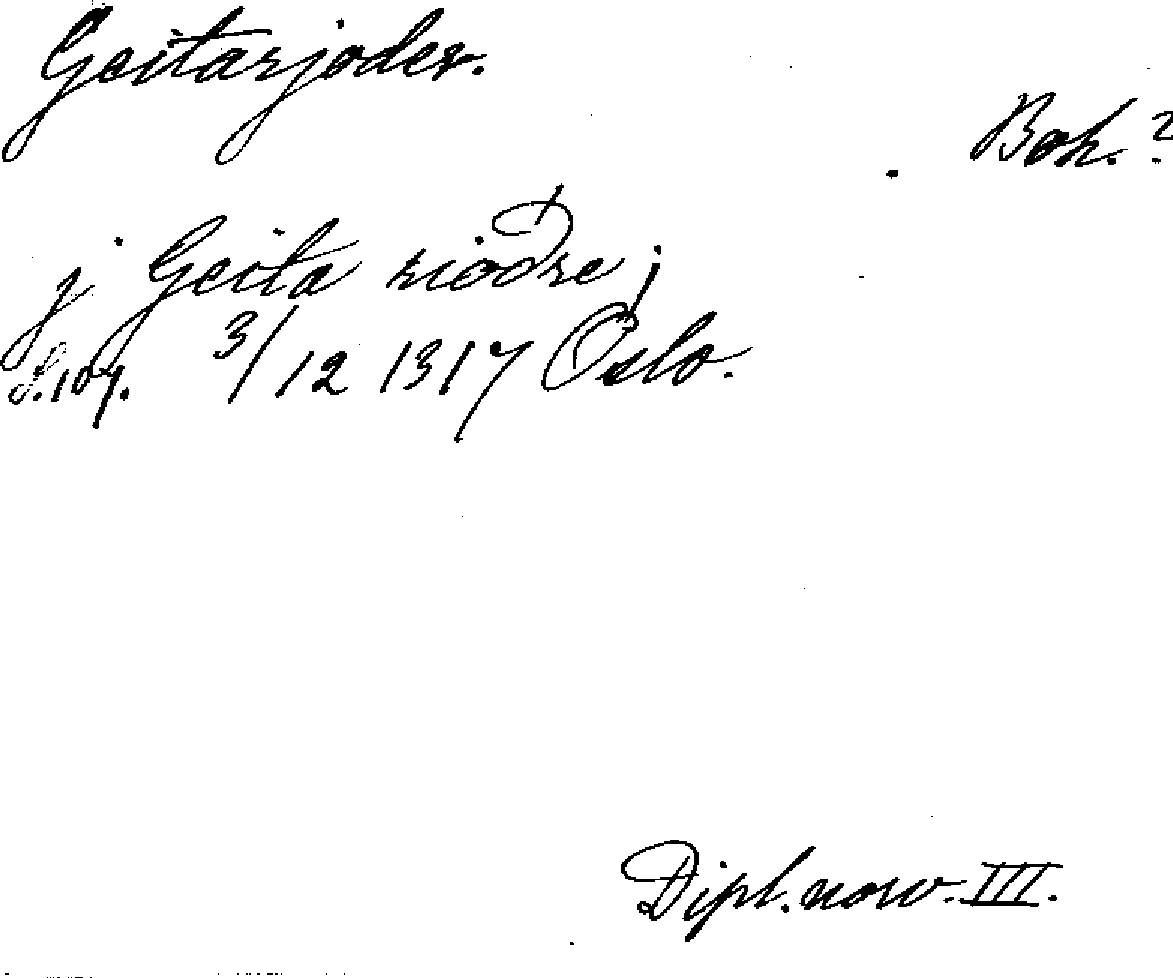 Geitarjoder.
Boh.?
j Geita rioðre;
S. 107. 3/12 1317 Oslo.
Dipl. norv. III.